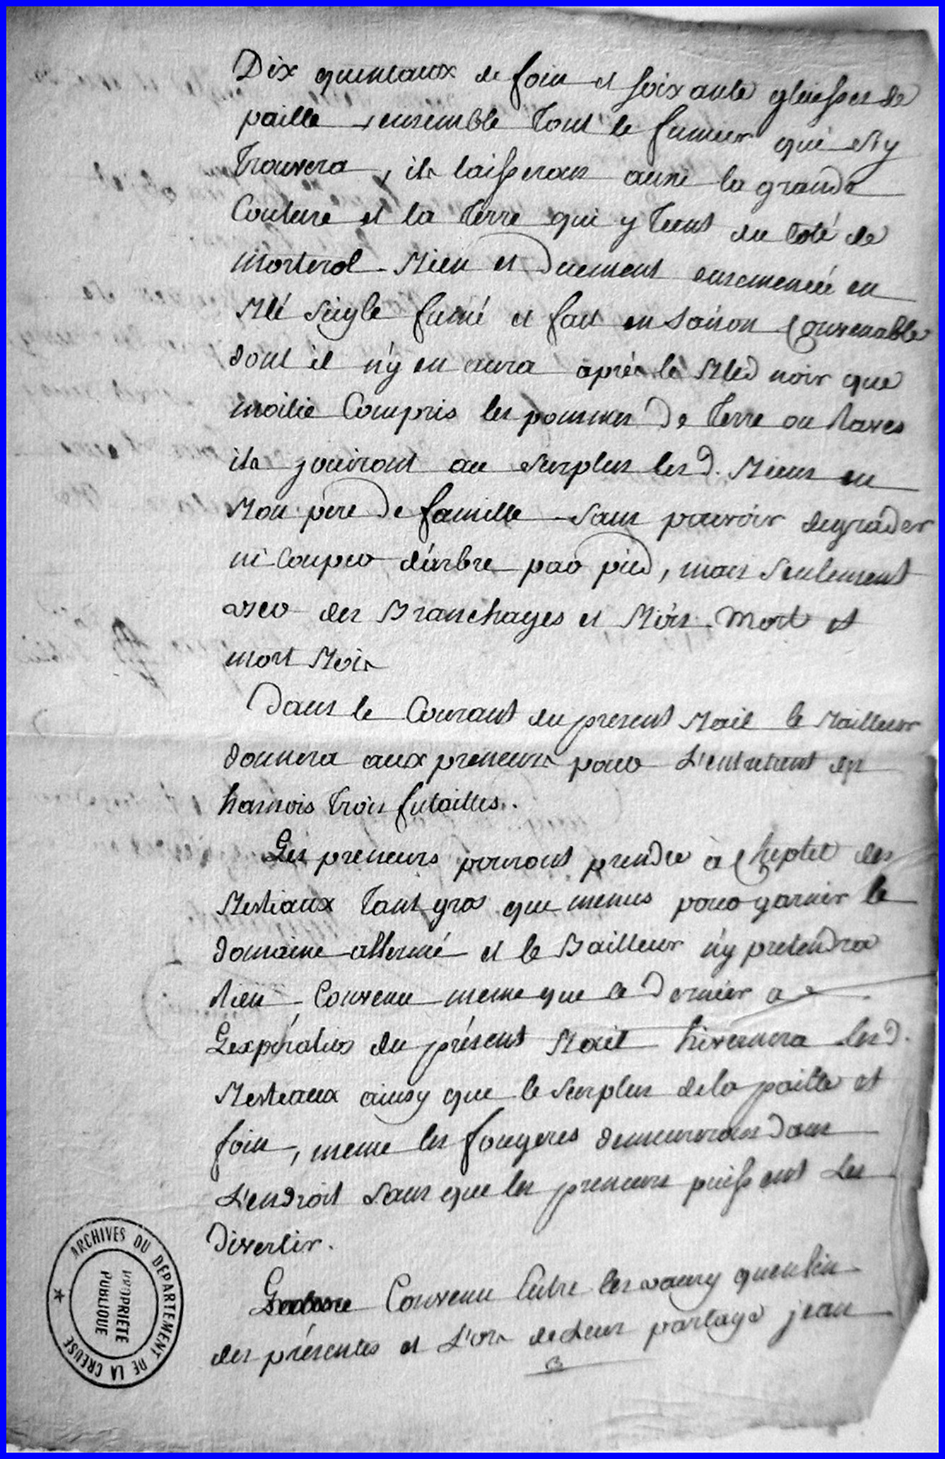 Dix quintaux de foin et soixante gluisses de
paille, ensemble tout le fumier qui s'y
trouvera, ils laisseront aussi la grande
Couture et la terre qui y tient du coté de
morterol Bien et duement ensemencée en
Blé seigle fumé et fait en saison Convenable
dont il n'y en aura après le Bled noir que
moitié Compris les pommes de terre ou Raves
ils jouiront au surplus lesd. Biens en
Bon père de famille sans pouvoir degrader
ni Couper d'arbre par pied, mais seulement
user des Branchages et Bois Mort et
mort Bois
Dans le Courant du present Bail le Bailleur
donnera aux preneurs pour L'entretient des
harnois trois futailles.
Les preneurs pouront prendre à Cheptel des
Bestiaux tant gros que menus pour garnir le
domaine affermé et le Bailleur n'y pretendra
Rien, Convenu meme que ce Dernier a
L'expiration du présent Bail hivernera lesd.
Bestiaux ainsy que le surplus de la paille et
foin, meme les fougeres demeureront dans
L'endroit sans que les preneurs puissent Les
divertir.
Convenu Entre les vaury quentin
des présentes et Lors de Leur partage jean
ARCHIVES DU DÉPARTEMENT DE LA CREUSE
PROPRIÉTÉ
PUBLIQUE